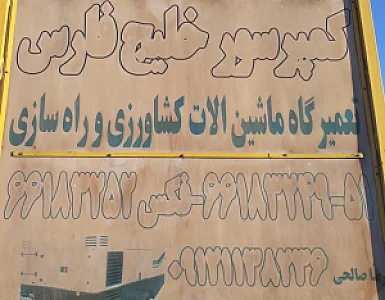 کمپرسور خلیج فارس
تعمیر گاه ماشین الات کشاورزی و راه سازی
۶۶۱۸۳۲۴۹-۵۱-فکس ۶۶۱۸۳۲۵۲
صالحی ۰۹۱۲۱۱۳۸۷۳۶